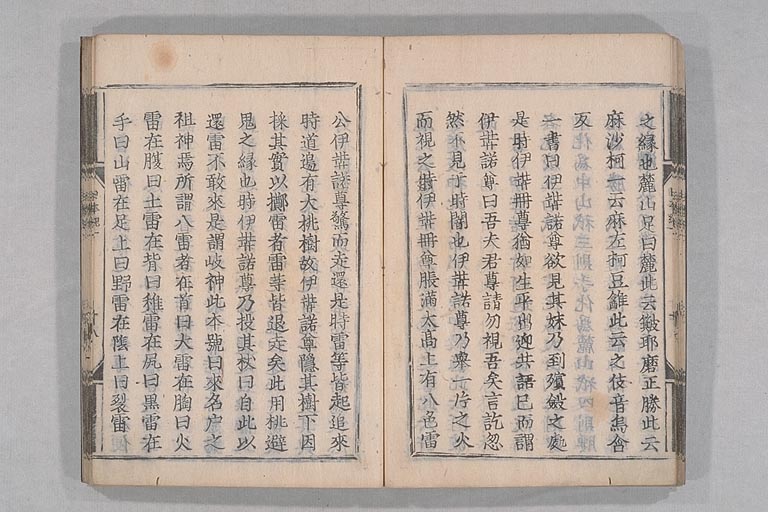 之緣也麓山足曰麓此云簸耶磨正勝此云
麻沙柯一云麻左柯豆此云之伎音鳥含
反
一書曰伊弉諾尊欲見其妹乃到殯斂之處
是時伊弉冊尊猶如生平出迎共語已而謂
伊弉諾尊曰吾夫君尊請勿視吾矣言訖忽
然不見于時闇也伊弉諾尊乃舉一片之火
而視之時伊弉冊尊脹滿太高上有八色雷
公伊弉諾尊驚而走還是時雷等皆起追來
時道邊有大桃樹故伊弉諾尊隱其樹下因
採其實以擲雷者雷等皆退走矣此用桃避
鬼之緣也時伊弉諾尊乃投其杖曰自此以
還雷不敢來是謂岐神此本號曰來名戶之
祖神焉所謂八雷者在首曰大雷在胸曰火
雷在腹曰土雷在背曰稚雷在尻曰黑雷在
手曰山雷在足上曰野雷在陰上曰裂雷